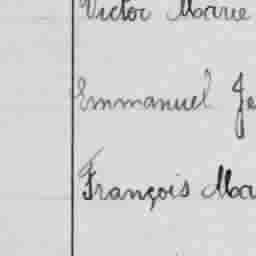 Victor Marie
Emmanuel Je
François Mar